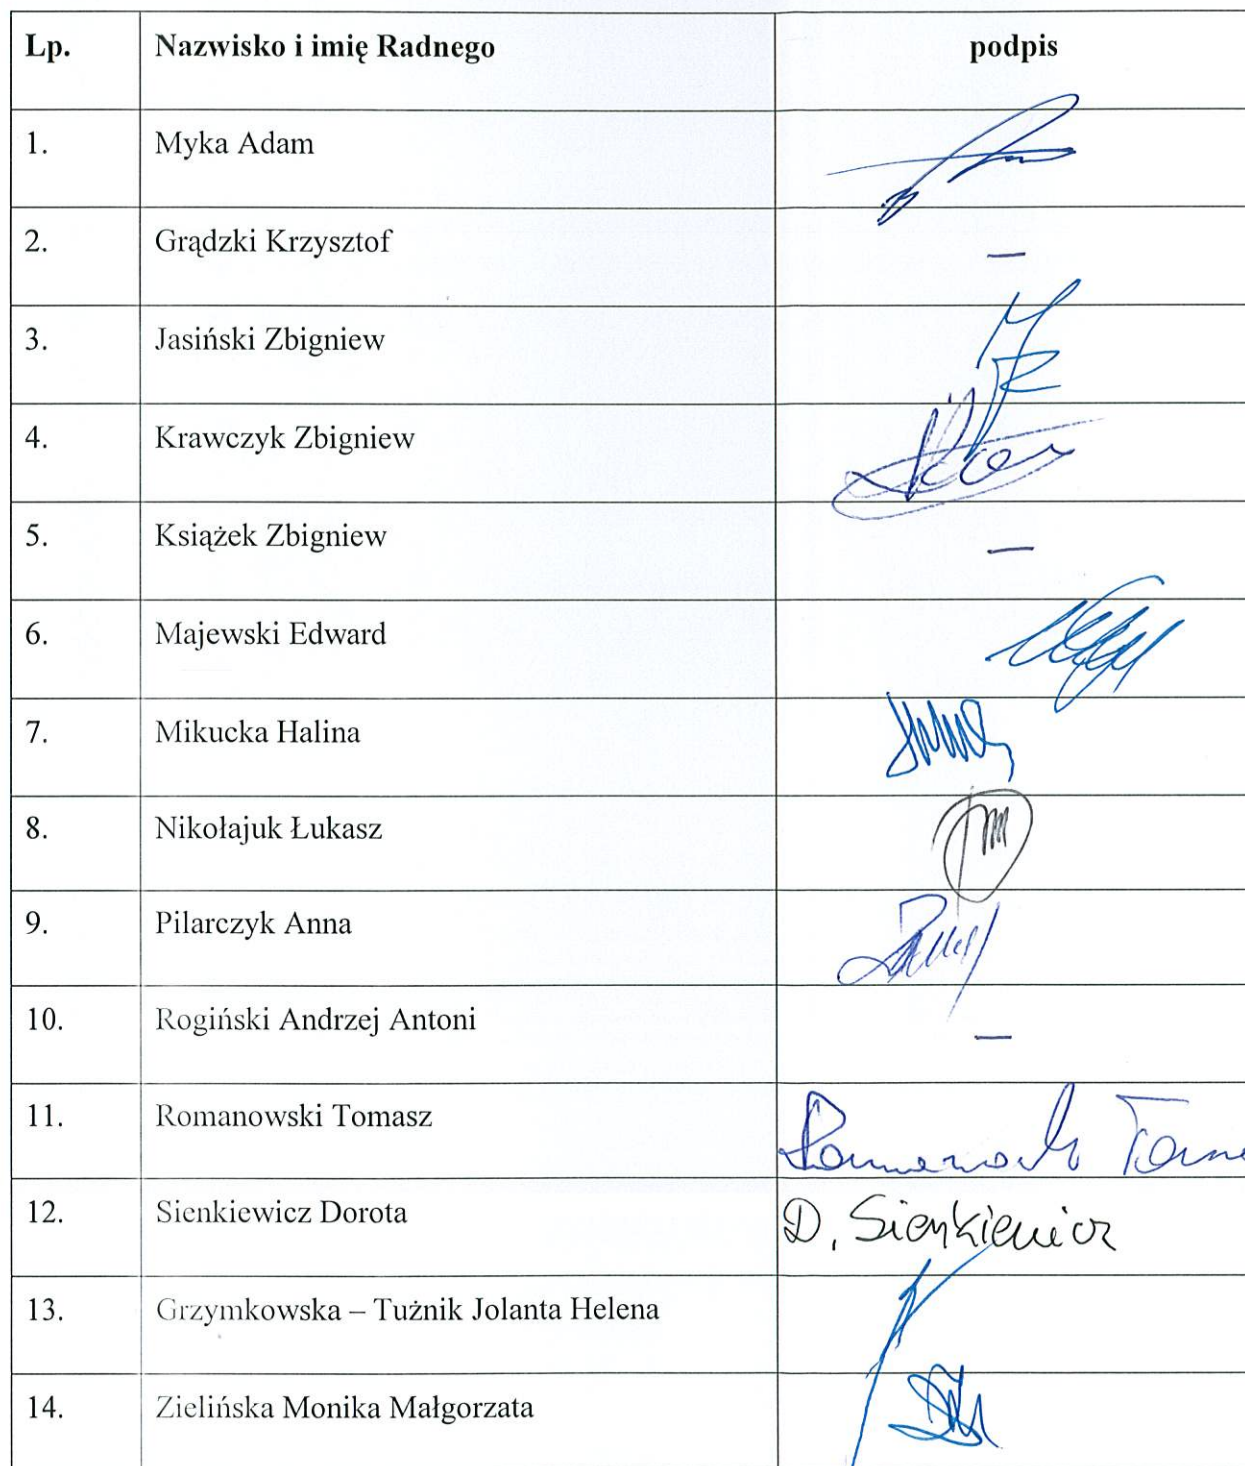 Lp. Nazwisko i imię Radnego podpis
1. Myka Adam
2. Grądzki Krzysztof —
3. Jasiński Zbigniew
4. Krawczyk Zbigniew
5. Książek Zbigniew —
6. Majewski Edward
7. Mikucka Halina
8. Nikołajuk Łukasz
9. Pilarczyk Anna
10. Rogiński Andrzej Antoni —
11. Romanowski Tomasz
12. Sienkiewicz Dorota D. Sienkiewicz
13. Grzymkowska – Tużnik Jolanta Helena
14. Zielińska Monika Małgorzata